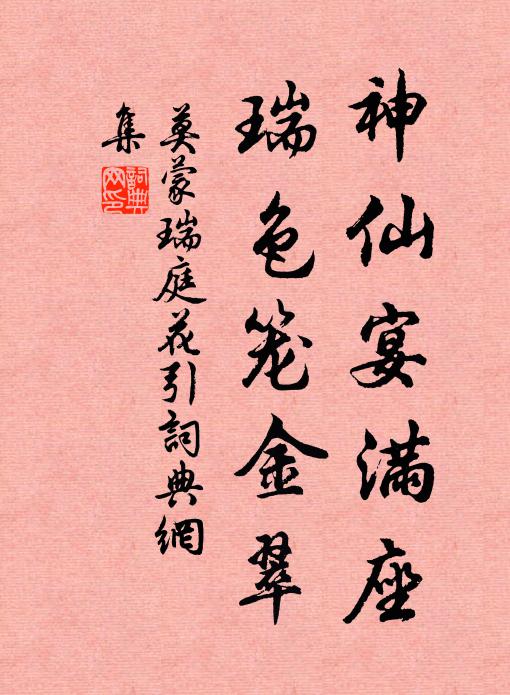 神仙宴满座
瑞色笼金翠
莫蒙瑞庭花引詞典網
集
詞典
网印